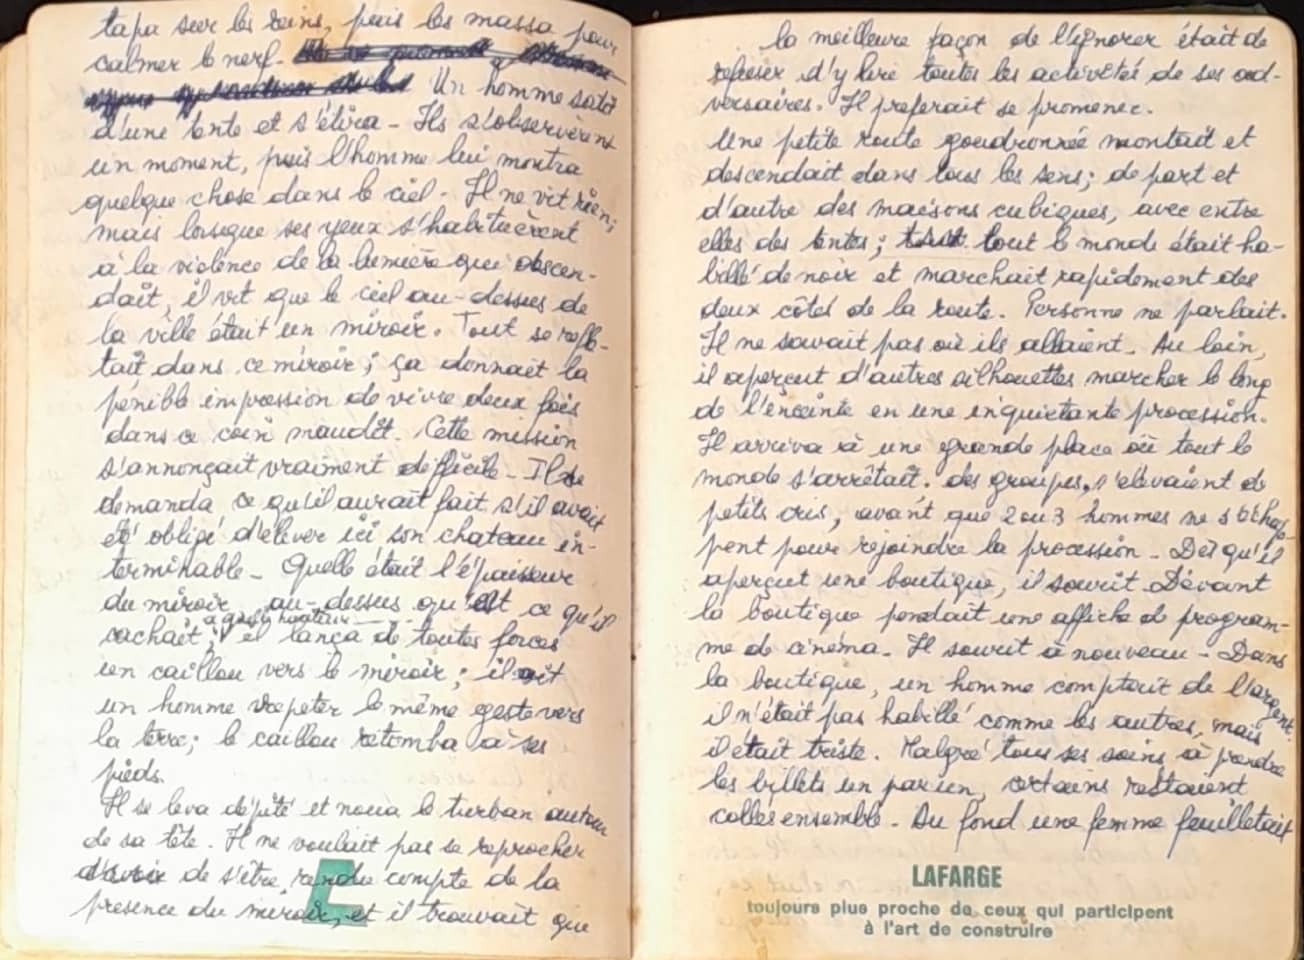 tapa sur les reins, puis les massa pour
calmer le nerf.
Un homme satô
d'une tente et s'étira - Ils s'observèrent
un moment, puis l'homme lui montra
quelque chose dans le ciel - Il ne vit rien;
mais lorsque ses yeux s'habituèrent
à la violence de la lumière qui descen-
dait, il vit que le ciel au-dessus de
la ville était un miroir. Tout se reflé-
tait dans ce miroir; ça donnait la
pénible impression de vivre deux fois
dans ce coin maudit. Cette mission
s'annonçait vraiment difficile - Il se
demanda ce qu'il aurait fait s'il avait
été obligé d'élever ici son chateau in-
terminable - Quelle était l'épaisseur
du miroir, au-dessus qu'est ce qu'il
cachait; il lança de toutes forces
un caillou vers le miroir; il vit
un homme repeter le même geste vers
la terre; le caillou retomba à ses
pieds.
Il se leva dépité et noua le turban autour
de sa tête. Il ne voulait pas se reprocher
de s'être rendu compte de la
presence du miroir, et il trouvait que
la meilleure façon de l'ignorer était de
refuser d'y lire toutes les activités de ses ad-
versaires. Il preferait se promener.
Une petite route goudronnée montait et
descendait dans tous les sens; de part et
d'autre des maisons cubiques, avec entre
elles des tentes; tout le monde était ha-
billé de noir et marchait rapidement des
deux côtés de la route. Personne ne parlait.
Il ne savait pas où ils allaient - Au loin,
il aperçut d'autres silhouettes marcher le long
de l'enceinte en une inquietante procession.
Il arriva à une grande place où tout le
monde s'arrêtait. des groupes, s'elevaient de
petits cris, avant que 2 ou 3 hommes ne s'échap-
pent pour rejoindre la procession - Dès qu'il
aperçut une boutique, il sourit Devant
la boutique pendait une affiche de program-
me de cinéma - Il sourit à nouveau - Dans
la boutique, un homme comptait de l'argent.
il n'était pas habillé comme les autres, mais
il était triste. Malgré tous ses soins à prendre
les billets un par un, certains restaient
collés ensemble - Au fond une femme feuilletait
LAFARGE
toujours plus proche de ceux qui participent
à l'art de construire